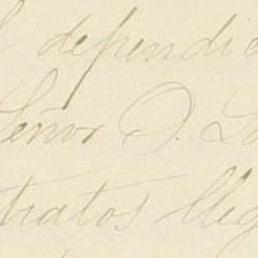 dependi
Señor D.
tratos lleg